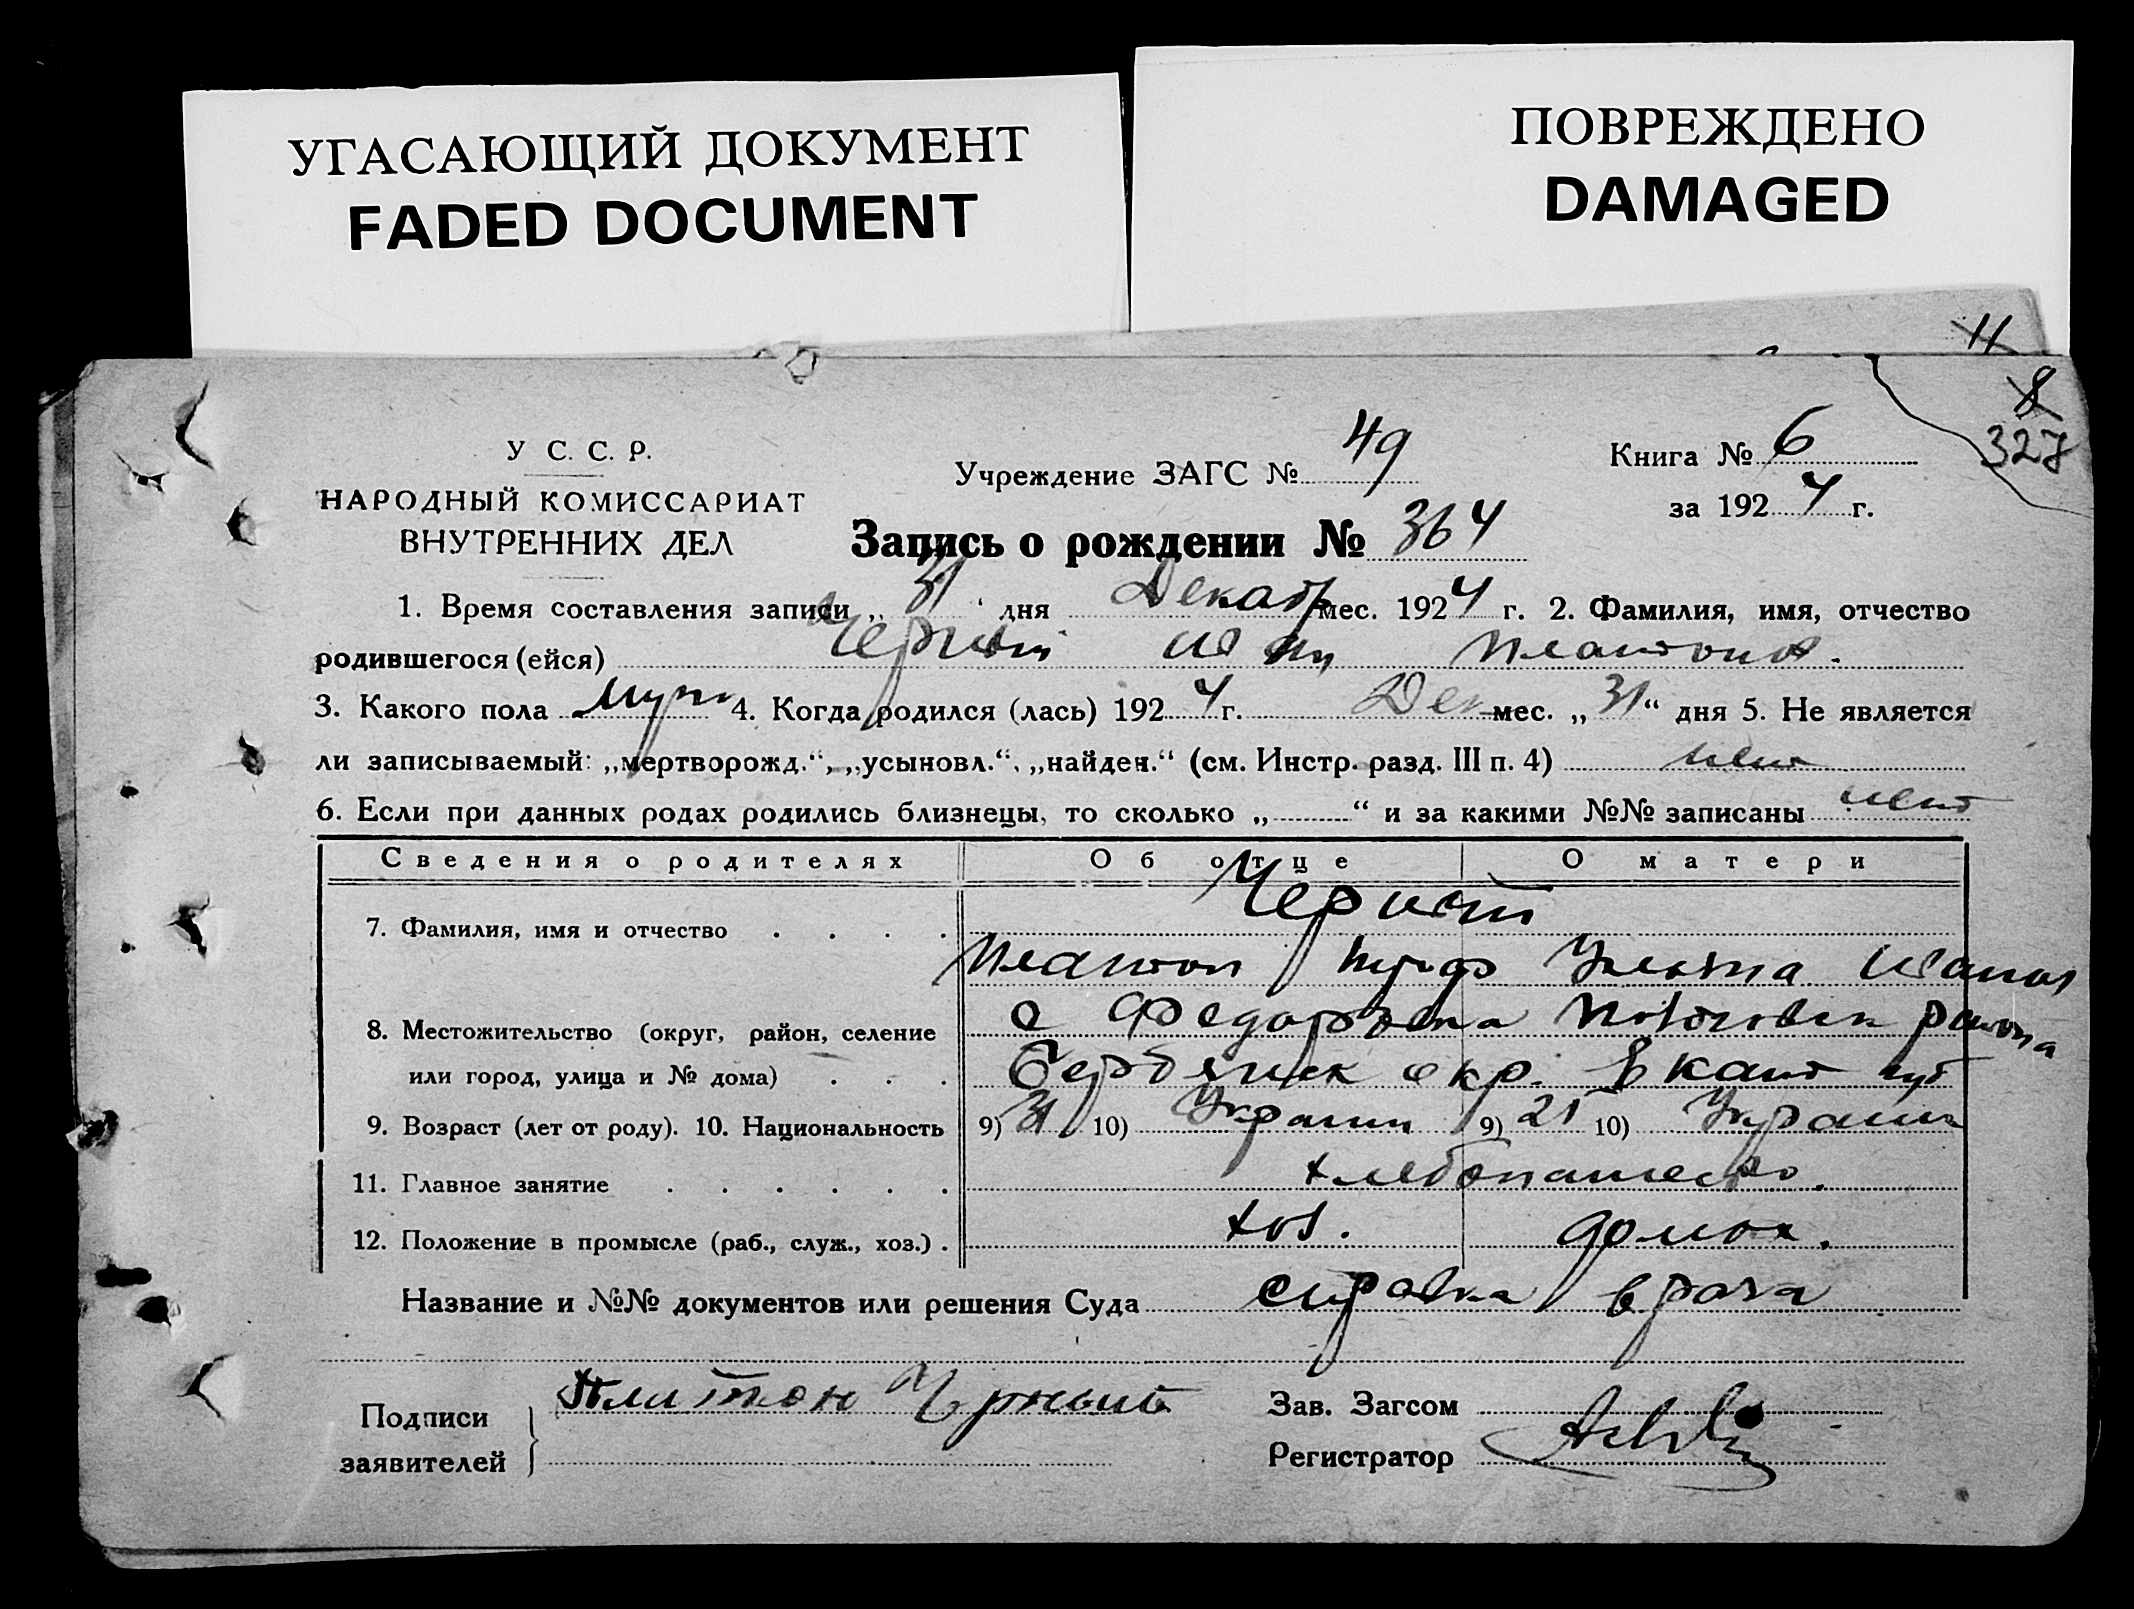 УГАСАЮЩИЙ ДОКУМЕНТ
FADED DOCUMENT
ПОВРЕЖДЕНО
DAMAGED
11
8
327
У С. С. Р.
НАРОДНЫЙ КОМИССАРИАТ
ВНУТРЕННИХ ДЕЛ
Учреждение ЗАГС № 49
Книга № 6
за 1924 г.
Запись о рождении № 364
1. Время составления записи „ 31 " дня Декабр мес. 1924 г. 2. Фамилия, имя, отчество
родившегося (ейся) Черный Платонов.
3. Какого пола муж 4. Когда родился (лась) 1924 г. Дек мес. „ 31 " дня 5. Не является
ли записываемый: „мертворожд.", „усыновл.", „найден." (см. Инстр. разд. III п. 4) нет
6. Если при данных родах родились близнецы, то сколько „ " и за какими №№ записаны нет
Сведения о родителях Об отце О матери
7. Фамилия, имя и отчество . . . . Черный
Платон Ульяна Иванов
8. Местожительство (округ, район, селение с Федоровка района
или город, улица и № дома) . . . Бердянск окр.
9. Возраст (лет от роду). 10. Национальность 9) 31 10) Украин 9) 21 10) Украин
11. Главное занятие . . . . . . хлебопашество.
12. Положение в промысле (раб., служ., хоз.) . хоз. домох.
Название и №№ документов или решения Суда справка врача
Подписи
заявителей
Плитон Чрный
Зав. Загсом
Регистратор